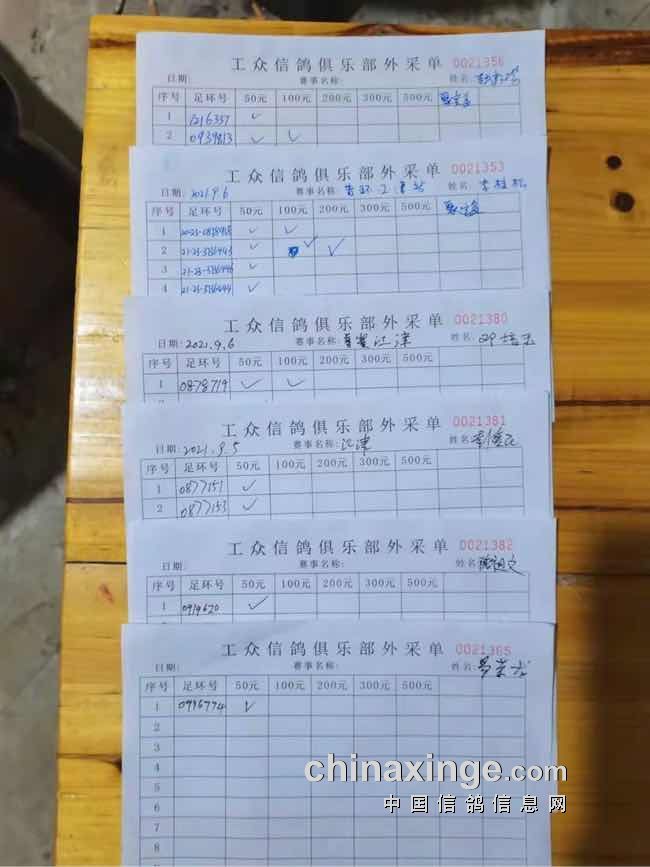 工众信鸽俱乐部外采单 0021356
日期: 赛事名称: 姓名:
序号 足环号 50元 100元 200元 300元 500元
1 1216337 ✓
2 0939813 ✓ ✓
工众信鸽俱乐部外采单 0021353
日期: 2021.9.6 赛事名称: 姓名: 李桂松
序号 足环号 50元 100元 200元 300元 500元
1 ✓ ✓
2 ✓ ✓ ✓
3 ✓
4 ✓
工众信鸽俱乐部外采单 0021380
日期: 2021.9.6 赛事名称: 江津 姓名:
序号 足环号 50元 100元 200元 300元 500元
1 0878719 ✓ ✓
工众信鸽俱乐部外采单 0021381
日期: 2021.9.5 赛事名称: 江津 姓名:
序号 足环号 50元 100元 200元 300元 500元
1 0877151 ✓
2 0877153 ✓
工众信鸽俱乐部外采单 0021382
日期: 赛事名称: 姓名
序号 足环号 50元 100元 200元 300元 500元
1 0914620 ✓
工众信鸽俱乐部外采单 0021365
日期: 赛事名称: 姓名:
序号 足环号 50元 100元 200元 300元 500元
1 0916774 ✓
2
3
4
5
6
7
8
chinaxinge.com
中国信鸽信息网